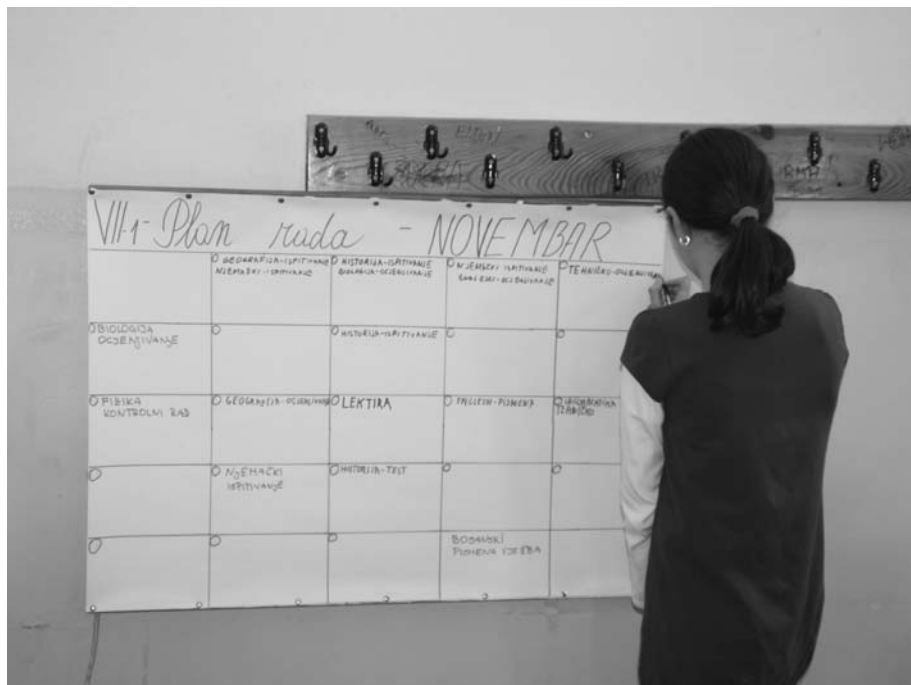 VII-1- Plan rada - NOVEMBAR
GEOGRAFIJA-ISPITIVANJE
NJEMAČKI-ISPITIVANJE
HISTORIJA-ISPITIVANJE
BIOLOGIJA-OCJENJIVANJE
NJEMAČKI ISPITIVANJE
ENGLESKI-OCJENJIVANJE
TEHNIČKO-OCJENJIVANJE
BIOLOGIJA
OCJENJIVANJE
HISTORIJA-ISPITIVANJE
FIZIKA
KONTROLNI RAD
GEOGRAFIJA-OCJENJIVANJE
LEKTIRA
NJEMAČKI
ISPITIVANJE
HISTORIJA-TEST
BOSANSKI
PISMENA VJEŽBA